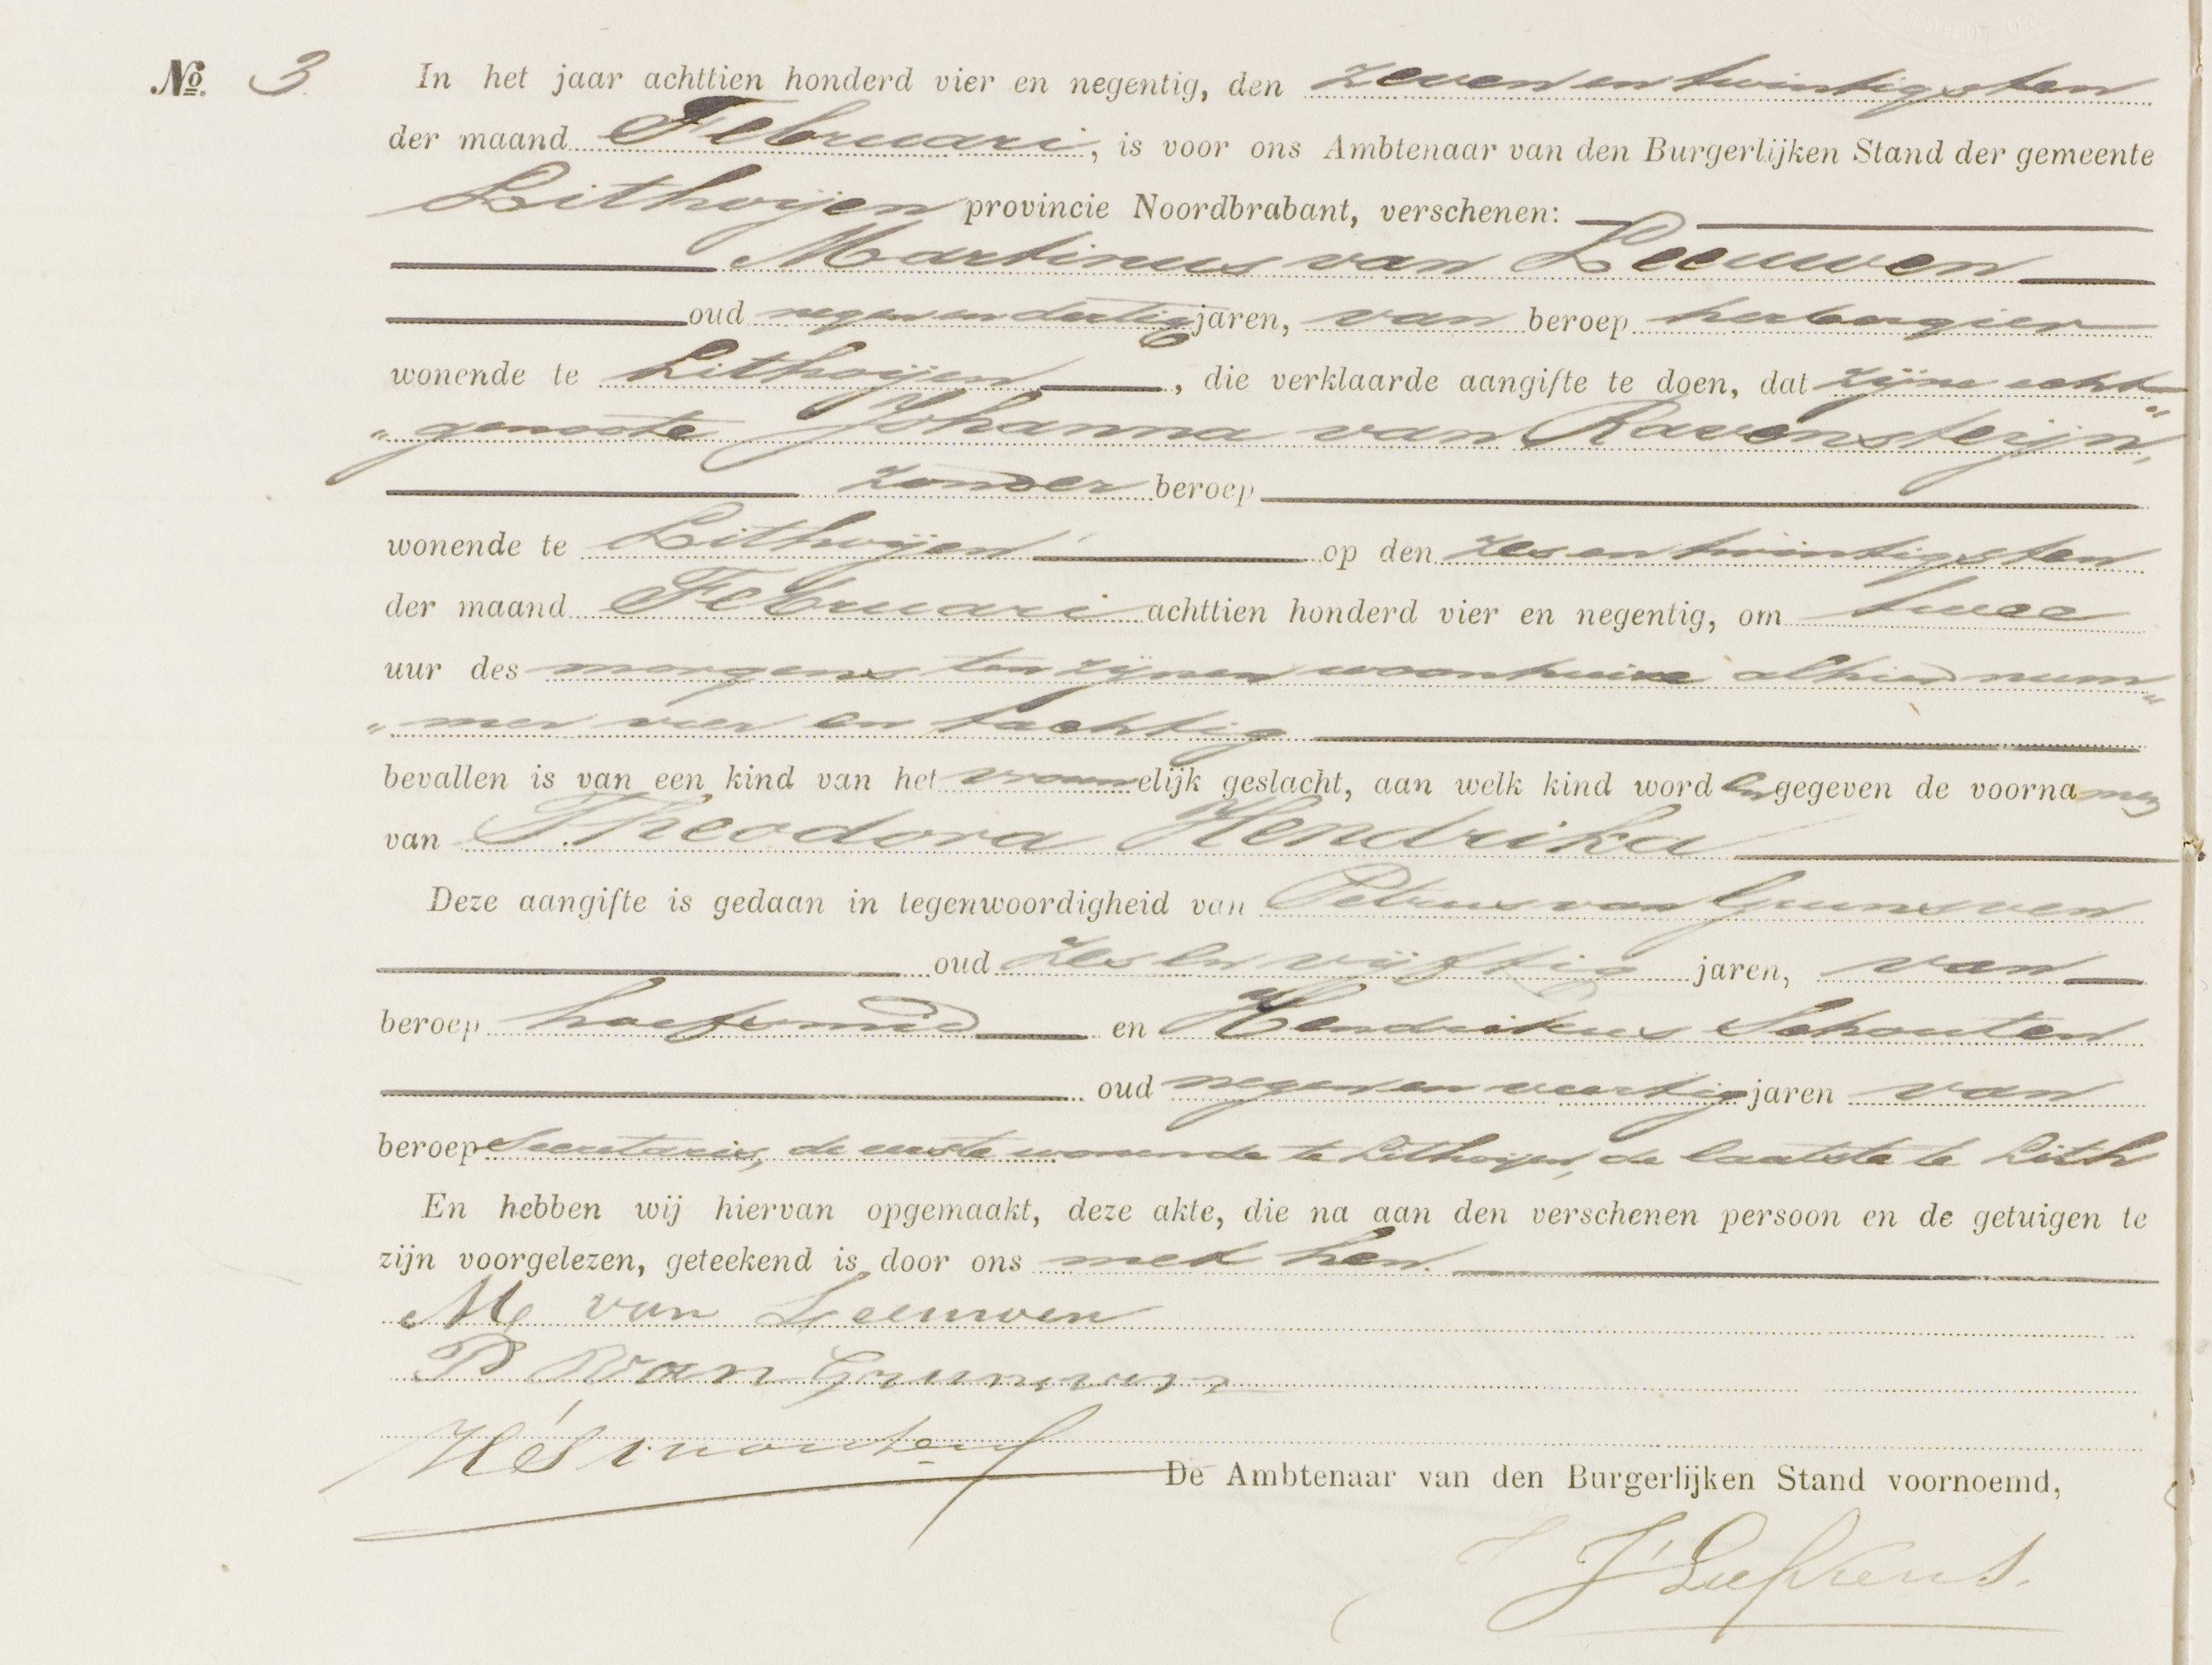 No. 3 In het jaar achttien honderd vier en negentig, den zevenentwintigsten
der maand Februari, is voor ons Ambtenaar van den Burgerlijken Stand der gemeente
Lithoijen provincie Noordbrabant, verschenen:
Martinus van Leeuwen
oud negenendertig jaren, van beroep herbergier
wonende te Lithoijen, die verklaarde aangifte te doen, dat zijne echt„
„genoote Johanna van Ravensteijn,
zonder beroep
wonende te Lithoijen op den zesentwintigsten
der maand Februari achttien honderd vier en negentig, om twee
uur des morgens ten zijnen woonhuize alhier num„
„mer vier en tachtig
bevallen is van een kind van het vrouwelijk geslacht, aan welk kind worden gegeven de voornamen
van Theodora Hendrika
Deze aangifte is gedaan in tegenwoordigheid van Petrus van Grunsven
oud zes en vijftig jaren, van
beroep hoefsmid en Hendrikus Schouten
oud negen en veertig jaren van
beroep Secretaris, de eerste wonende te Lithoijen, de laatste te Lith
En hebben wij hiervan opgemaakt, deze akte, die na aan den verschenen persoon en de getuigen te
zijn voorgelezen, geteekend is door ons met hen.
M van Leeuwen
P van Grunsven
De Ambtenaar van den Burgerlijken Stand voornoemd,